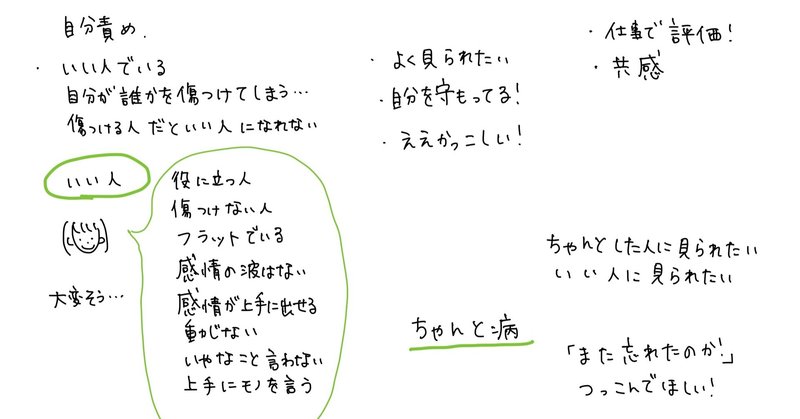 自分責め.
・いい人でいる
自分が誰かを傷つけてしまう…
傷つける人だといい人になれない
いい人
大変そう…
役に立つ人
傷つけない人
フラットでいる
感情の波はない
感情が上手に出せる
動じない
いやなこと言わない
上手にモノを言う
・よく見られたい
・自分を守もってる!
・ええかっこしい!
・仕事で評価!
・共感
ちゃんとした人に見られたい
いい人に見られたい
ちゃんと病
「また忘れたのか!」
つっこんでほしい!